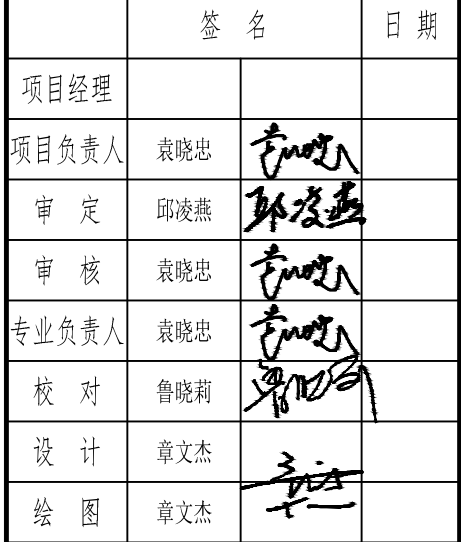 签 名 日 期
项目经理
项目负责人 袁晓忠 袁晓忠
审 定 邱凌燕 邱凌燕
审 核 袁晓忠 袁晓忠
专业负责人 袁晓忠 袁晓忠
校 对 鲁晓莉
设 计 章文杰
绘 图 章文杰